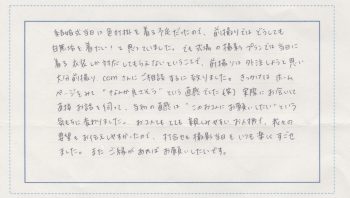 結婚式当日は色打掛を着る予定だったので、前撮りではどうしても
白無垢を着たい！と思っていました。でも式場の撮影プランでは当日に
着る衣装しか対応してもらえないということで、前撮りは外注しようと思い
大分前撮り.comさんにご相談するに至りました。きっかけはホーム
ページをみて"なんか良さそう"という直感でした(笑) 実際にお会いして
直接お話を伺って、当初の直感は"このお二人にお願いしたい"という
気もちに変わりました。お二人とても親しみやすいお人柄で、私々の
要望もお伝えしやすかったので、打合せも撮影当日もいつも楽しくすごせ
ました。またご縁があればお願いしたいです。